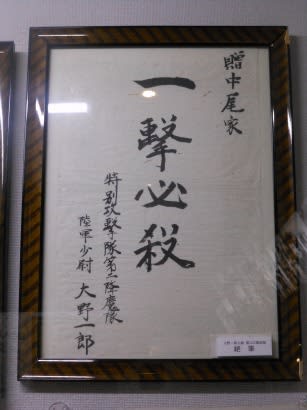 贈中尾家
一擊必殺
特別攻擊隊第二降魔隊
陸軍少尉 大野一郎
絶筆